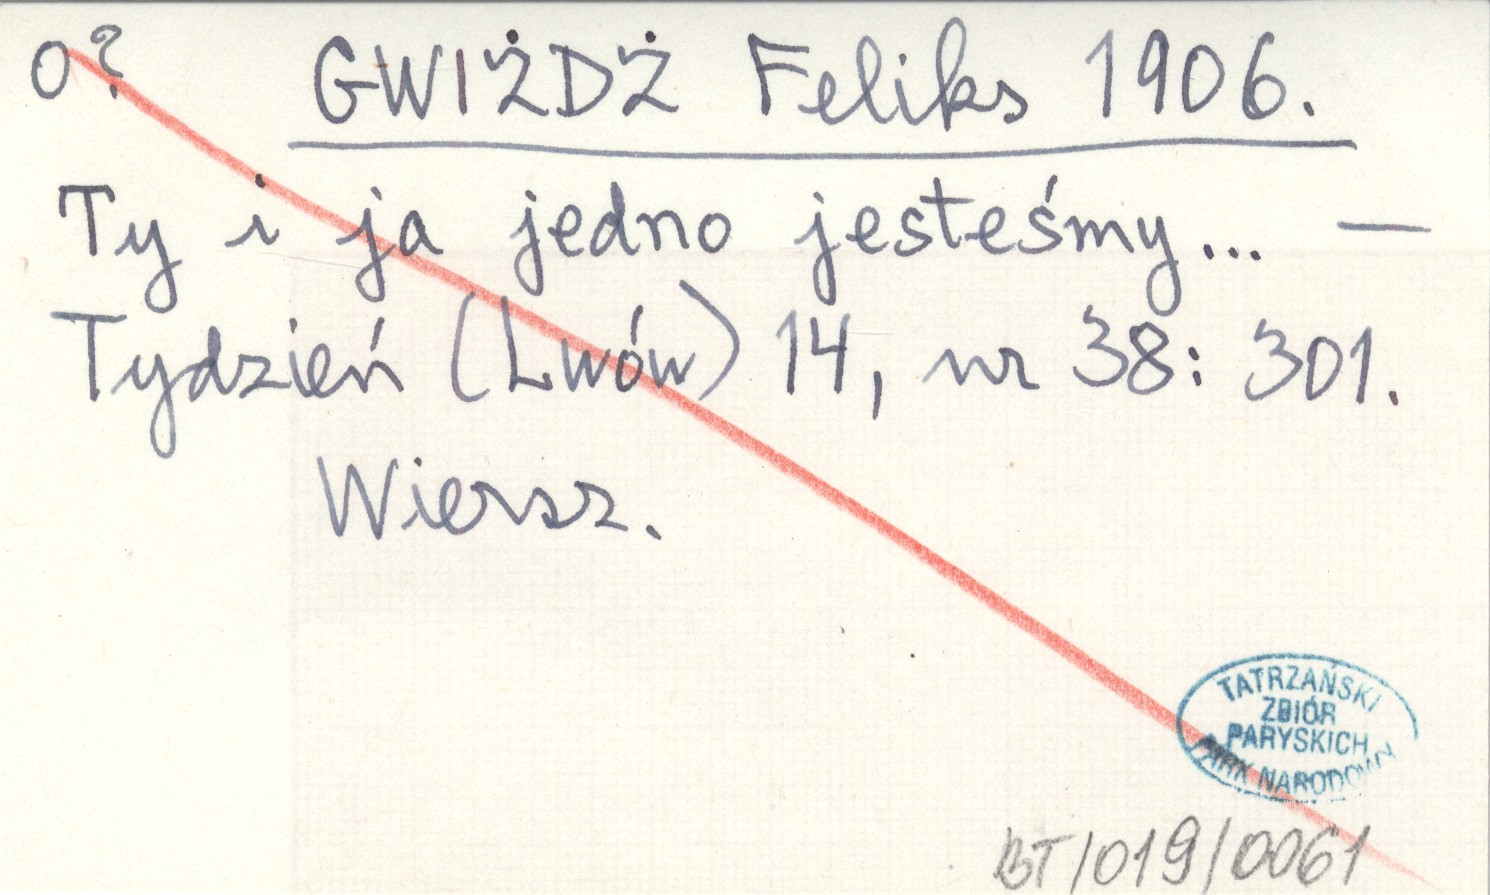 O? GWIŻDŻ Feliks 1906.
Ty i ja jedno jesteśmy... —
Tydzień (Lwów) 14, nr 38: 301.
Wiersz.
TATRZAŃSKI
ZBIÓR
PARYSKICH
PARK NARODOWY
BT/019/0061